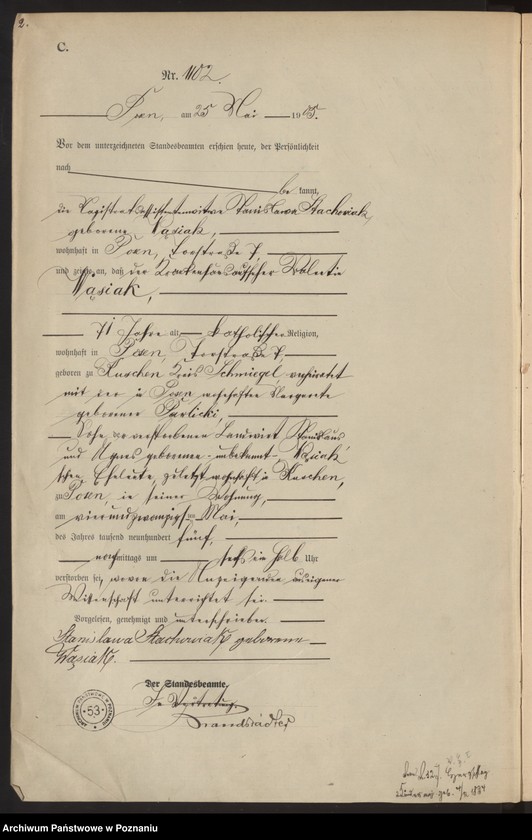 2.
C.
Nr. 1102.
Posen, am 25 Mai 1905.
Vor dem unterzeichneten Standesbeamten erschien heute, der Persönlichkeit
nach
be kannt,
die Magistratsassistentenwitwe Stanislawa Stachowiak,
geborene Wąsiak,
wohnhaft in Posen, Torstraße 7,
und zeigte an, daß der Valentin
Wąsiak,
71 Jahre alt, katholischer Religion,
wohnhaft in Posen, Torstraße 7,
geboren zu Kuschen Kreis Schmiegel, verheiratet
mit der in Posen wohnhaften Margarete
geborenen Pawlicki,
Sohn der verstorbenen Landwirt Stanislaus
und Agnes geborene - unbekannt - Wąsiak'
schen Eheleute, zuletzt wohnhaft in Kuschen,
zu Posen, in seiner Wohnung,
am vierundzwanzigsten Mai,
des Jahres tausend neunhundert fünf,
nachmittags um sechs ein halb Uhr
verstorben sei, wovon die Anzeigende aus eigener
Wissenschaft unterrichtet sei.
Vorgelesen, genehmigt und unterschrieben.
Stanisława Stachowiak geborene
Wąsiak.
Der Standesbeamte.
In Vertretung.
Brandstädter
53
geb. 1834
Archiwum Państwowe w Poznaniu